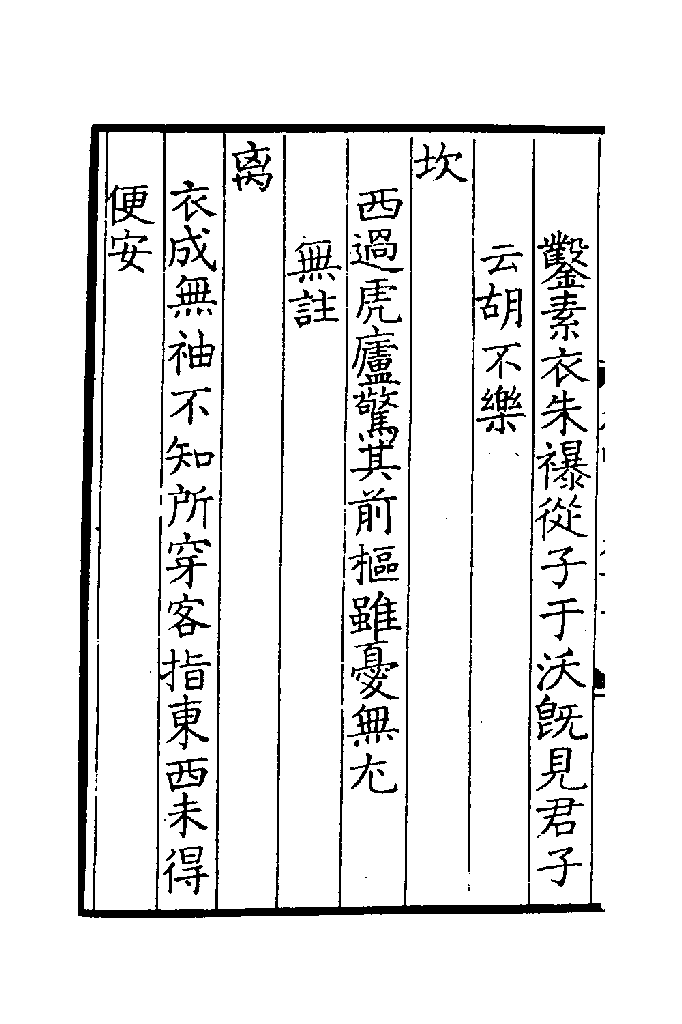 鑿素衣朱襮從子于沃旣見君子
云胡不樂
坎
西過虎廬驚其前樞雖憂無尤
無註
离
衣成無袖不知所穿客指東西未得
便安